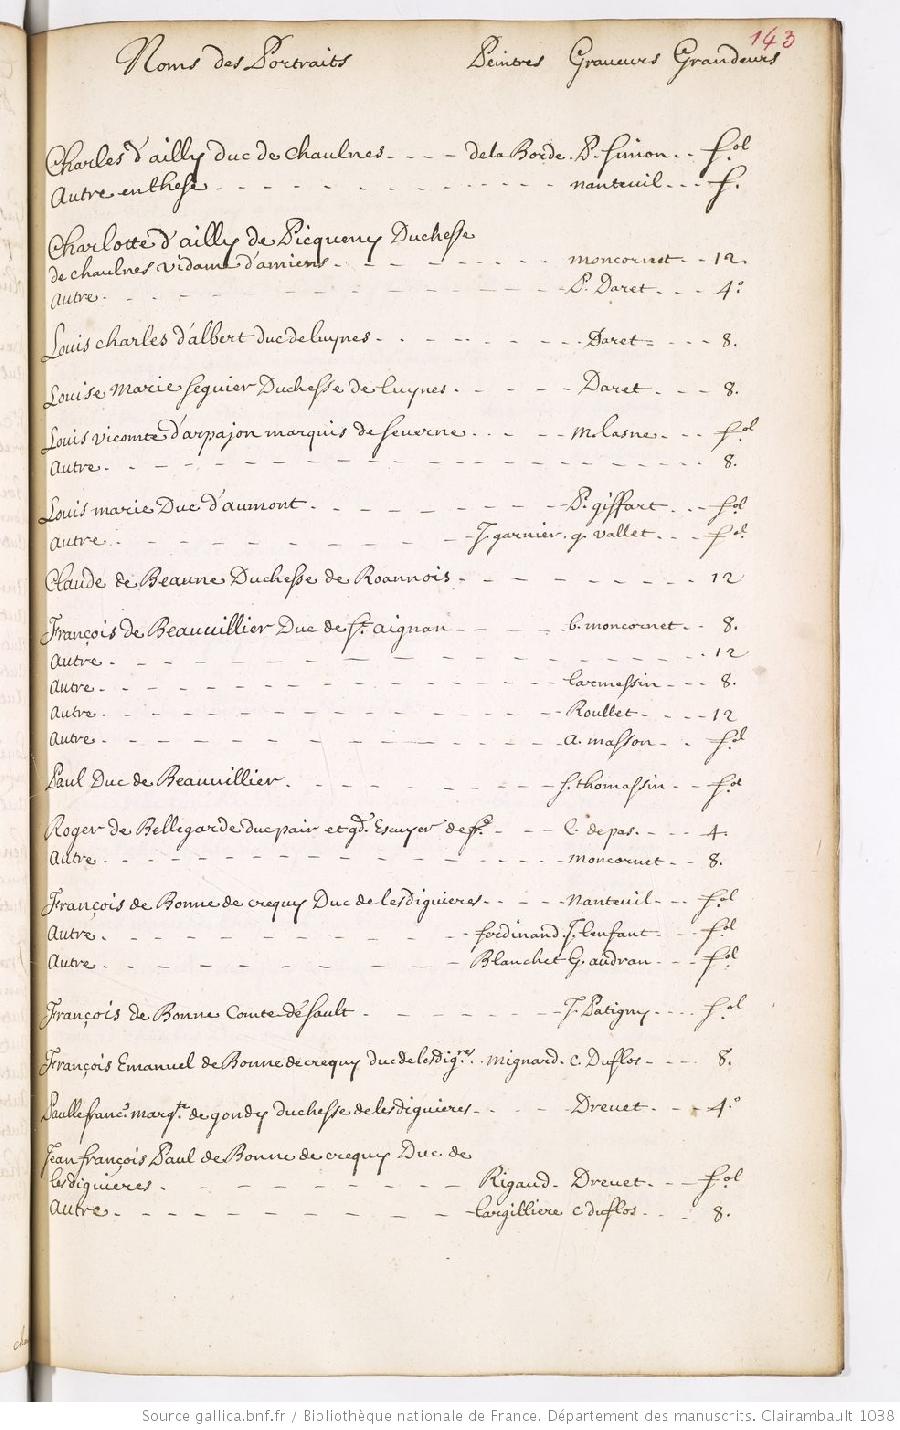 143
Noms des Portraits Peintres Graveurs Grandeurs
Charles d'ailly duc de chaulnes - - - - de la Borde. P. simon. . fol
Autre en these - - - - - - nanteuil - - - f.
Charlotte d'ailly de Picqueny Duchesse
de chaulnes vidame d'amiens. - - - - - moncornet - - 12.
Autre. - - - - - - P. Daret - - - 4°
Louis charles d'albert duc de luynes - - - - - - Daret - - - - 8.
Louise Marie seguier Duchesse de luynes. - - - - Daret - - - 8.
Louis vicomte d'arpajon marquis de severac . . - - - M. lasne. - - fol
Autre. - - - - - - 8.
Louis marie Duc d'aumont. - - - - - P. giffart. . - fol
Autre. - - - - - J. garnier. g. vallet. - - fol
Claude de Beaune Duchesse de Roannois - - - - - - 12
François de Beauvillier Duc de st. aignan - - - b. moncornet - - 8.
Autre. - - - - - - 12
Autre. - - - - - - larmessin - - - 8.
Autre. - - - - - - Roullet - - - 12
Autre. - - - - - - a. masson - . fol
Paul Duc de Beauvillier. - - - - - s. thomassin - - fol
Roger de Bellegarde duc pair et gd. Escuyer de fr. - - - C. de pas. - - - 4.
Autre. - - - - - - moncornet - - 8.
François de Bonne de crequy Duc de lesdiguieres - - - - nanteuil - - - fol
Autre. - - - - - ferdinand. J. lenfant - - fol
Autre. - - - - - Blanchet G. audran - - - fol
François de Bonne Comte de sault - - - - - - J. Patigny. - - - fol
François Emanuel de Bonne de crequy Duc de lesdig.res. . mignard. c. Duflos - - - - 8.
Paulle franc.e marg.te de gondy duchesse de lesdiguieres - - - - Drevet. - - - 4°
Jean françois Paul de Bonne de crequy Duc de
lesdiguieres. - - - - - Rigaud - Drevet - - - fol
Autre. - - - - - largilliere c duflos. - - - 8.
Source gallica.bnf.fr / Bibliothèque nationale de France. Département des manuscrits. Clairambault 1038